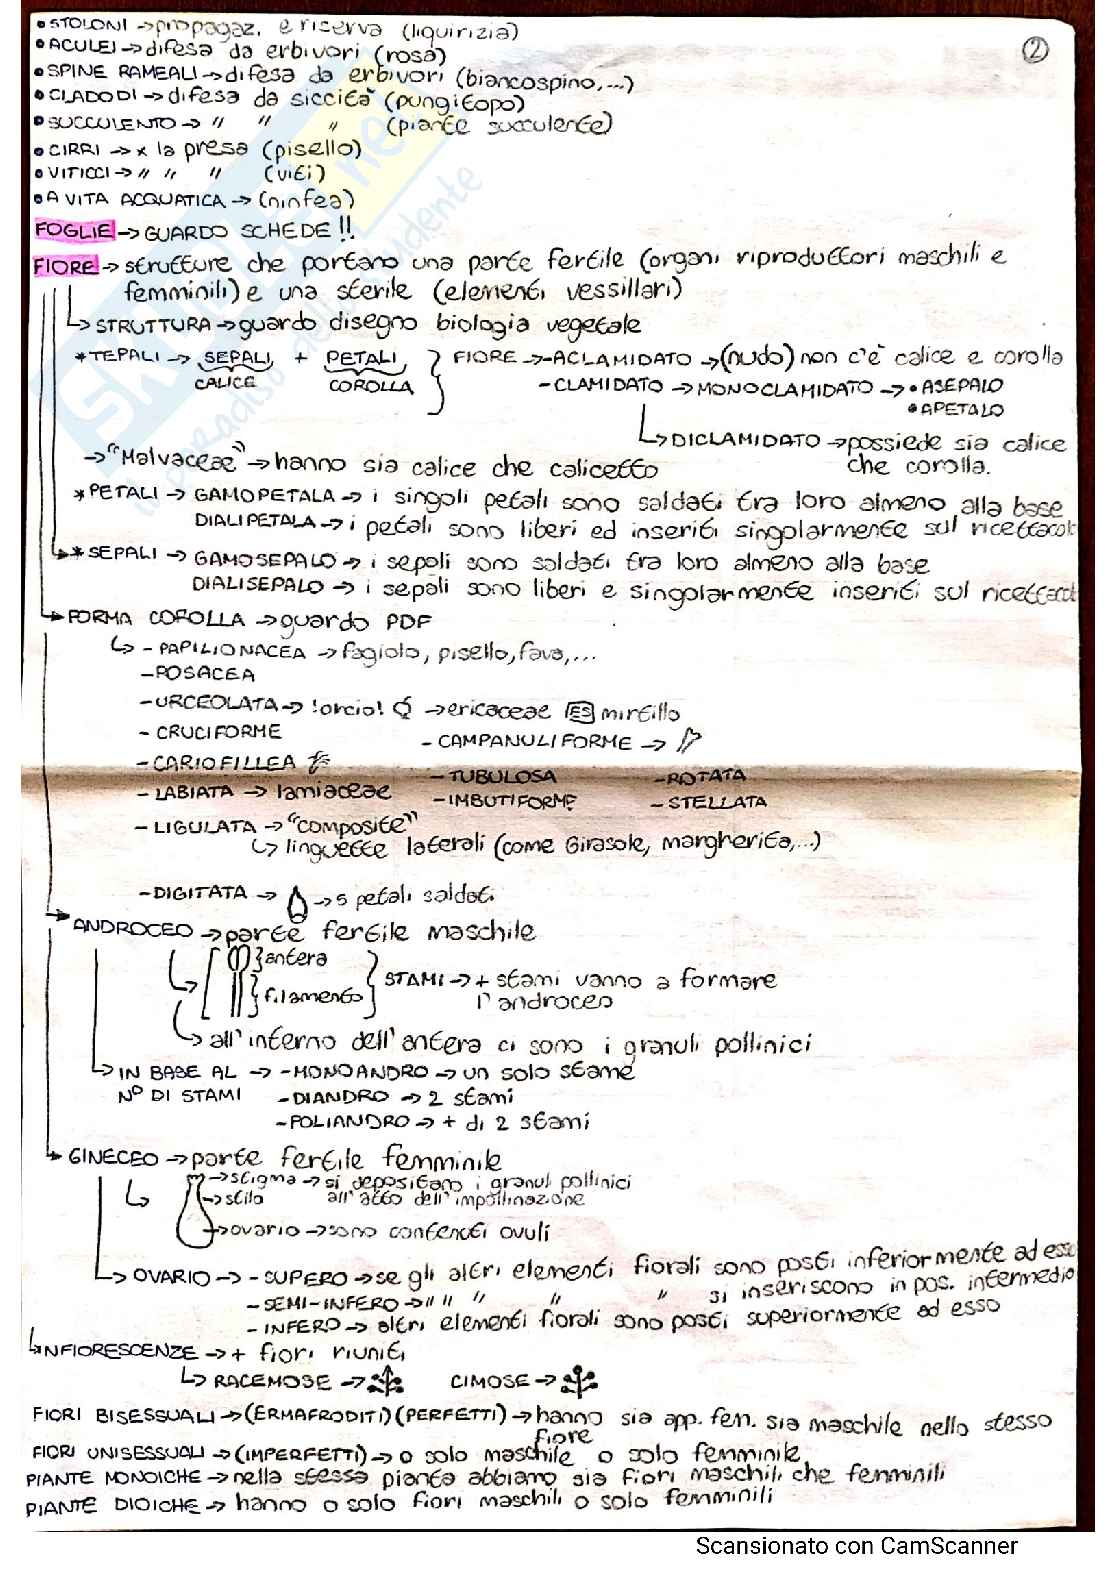 ②
• STOLONI → propagaz. e riserva (liquirizia)
• ACULEI → difesa da erbivori (rosa)
• SPINE RAMEALI → difesa da erbivori (biancospino,...)
• CLADODI → difesa da siccità (pungitopo)
• SUCCULENTO → " " " (piante succulente)
• CIRRI → x la presa (pisello)
• VITICCI → " " " (viti)
• A VITA ACQUATICA → (ninfea)
FOGLIE → GUARDO SCHEDE !!
FIORE → strutture che portano una parte fertile (organi riproduttori maschili e
femminili) e una sterile (elementi vessillari)
↳ STRUTTURA → guardo disegno biologia vegetale
* TEPALI → SEPALI + PETALI } FIORE → - ACLAMIDATO → (nudo) non c'è calice e corolla
CALICE COROLLA - CLAMIDATO → MONOCLAMIDATO → • ASEPALO
• APETALO
↳ DICLAMIDATO → possiede sia calice
che corolla.
→ "Malvaceae" → hanno sia calice che calicetto
* PETALI → GAMOPETALA → i singoli petali sono saldati tra loro almeno alla base
DIALIPETALA → i petali sono liberi ed inseriti singolarmente sul ricettacolo
* SEPALI → GAMOSEPALO → i sepali sono saldati tra loro almeno alla base
DIALISEPALO → i sepali sono liberi e singolarmente inseriti sul ricettacolo
FORMA COROLLA → guardo PDF
↳ - PAPILIONACEA → fagiolo, pisello, fava,...
- ROSACEA
- URCEOLATA → !orcio! → ericaceae ES mirtillo
- CRUCIFORME - CAMPANULIFORME →
- CARIOFILLEA - TUBULOSA - ROTATA
- LABIATA → lamiaceae - IMBUTIFORME - STELLATA
- LIGULATA → "composite"
↳ linguette laterali (come Girasole, margherita,...)
- DIGITATA → → 5 petali saldati
ANDROCEO → parte fertile maschile
} antera
} filamento } STAMI → + stami vanno a formare
l'androceo
↳ all'interno dell'antera ci sono i granuli pollinici
↳ IN BASE AL → - MONOANDRO → un solo stame
N° DI STAMI - DIANDRO → 2 stami
- POLIANDRO → + di 2 stami
GINECEO → parte fertile femminile
↳ → stigma → si depositano i granuli pollinici
→ stilo all'atto dell'impollinazione
→ ovario → sono contenuti ovuli
↳ OVARIO → - SUPERO → se gli altri elementi fiorali sono posti inferiormente ad esso
- SEMI-INFERO → " " " " " si inseriscono in pos. intermedia
- INFERO → altri elementi fiorali sono posti superiormente ad esso
↳ INFIORESCENZE → + fiori riuniti
↳ RACEMOSE → CIMOSE →
FIORI BISESSUALI → (ERMAFRODITI) (PERFETTI) → hanno sia app. fem. sia maschile nello stesso
fiore
FIORI UNISESSUALI → (IMPERFETTI) → o solo maschile o solo femminile
PIANTE MONOICHE → nella stessa pianta abbiamo sia fiori maschili che femminili
PIANTE DIOICHE → hanno o solo fiori maschili o solo femminili
SKUOLA.net
il paradiso dello studente
Scansionato con CamScanner